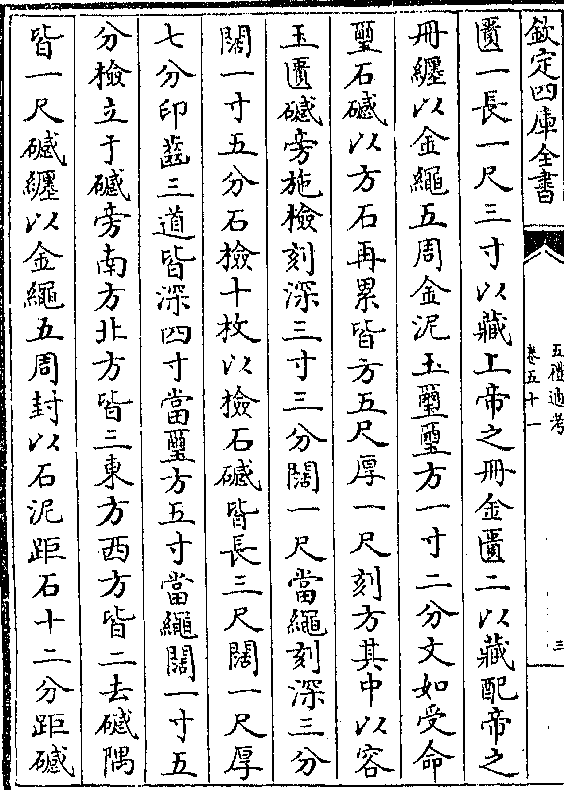 欽定四庫全書
五禮通考
卷五十一
三
匱一長一尺三寸以藏上帝之冊金匱二以藏配帝之
冊纒以金繩五周金泥玉璽璽方一寸二分文如受命
璽石䃭以方石再累皆方五尺厚一尺刻方其中以容
玉匱䃭旁施檢刻深三寸三分闊一尺當繩刻深三分
闊一寸五分石檢十枚以檢石䃭皆長三尺闊一尺厚
七分印齒三道皆深四寸當璽方五寸當繩闊一寸五
分檢立于䃭旁南方北方皆三東方西方皆二去䃭隅
皆一尺䃭纒以金繩五周封以石泥距石十二分距䃭